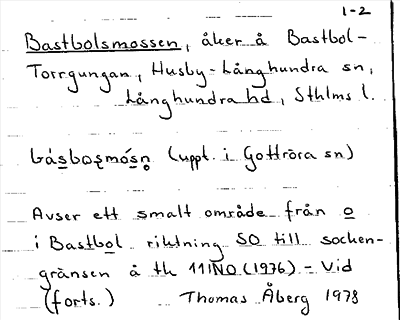 1-2
Bastbolsmossen, åker å Bastbol-
Torrgungan, Husby-Långhundra sn,
Långhundra hd, Sthlms l.
(uppt. i Gottröra sn)
Avser ett smalt område från o
i Bastbol riktning SO till socken-
gränsen å tk 11I NO (1976) - Vid
(forts.) Thomas Åberg 1978